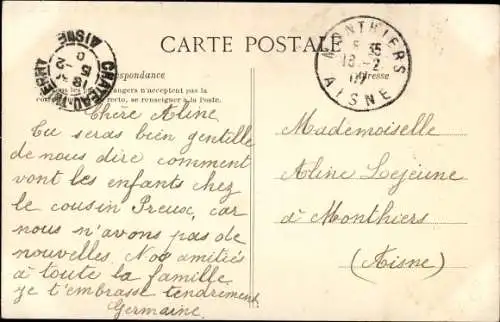 CARTE POSTALE
MONTHIERS
8 35
18 -2
09
AISNE
CHATEAU-THIERRY
AISNE
respondance
Adresse
angers n'acceptent pas la
recto, se renseigner à la Poste.
Chère Aline
Tu seras bien gentille
de nous dire comment
vont les enfants chez
le cousin Preux, car
nous n'avons pas de
nouvelles. Nos amitiés
à toute la famille
je t'embrasse tendrement
Germaine
Mademoiselle
Aline Lejeune
à Monthiers
(Aisne)